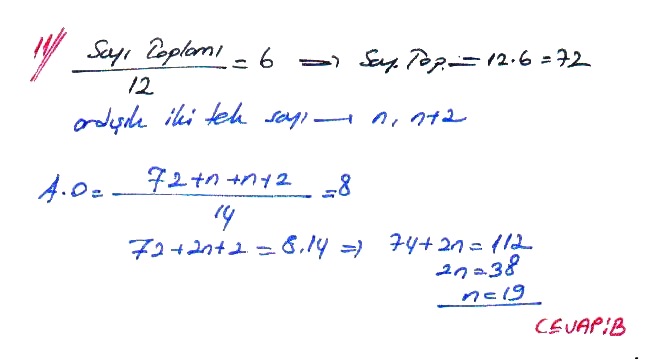 11/ Sayı Toplamı / 12 = 6 ⟹ Say. Top. = 12.6 = 72
ardışık iki tek sayı → n, n+2
A.O = 72+n+n+2 / 14 = 8
72+2n+2 = 8.14 ⟹ 74+2n = 112
2n = 38
n = 19
CEVAP:B